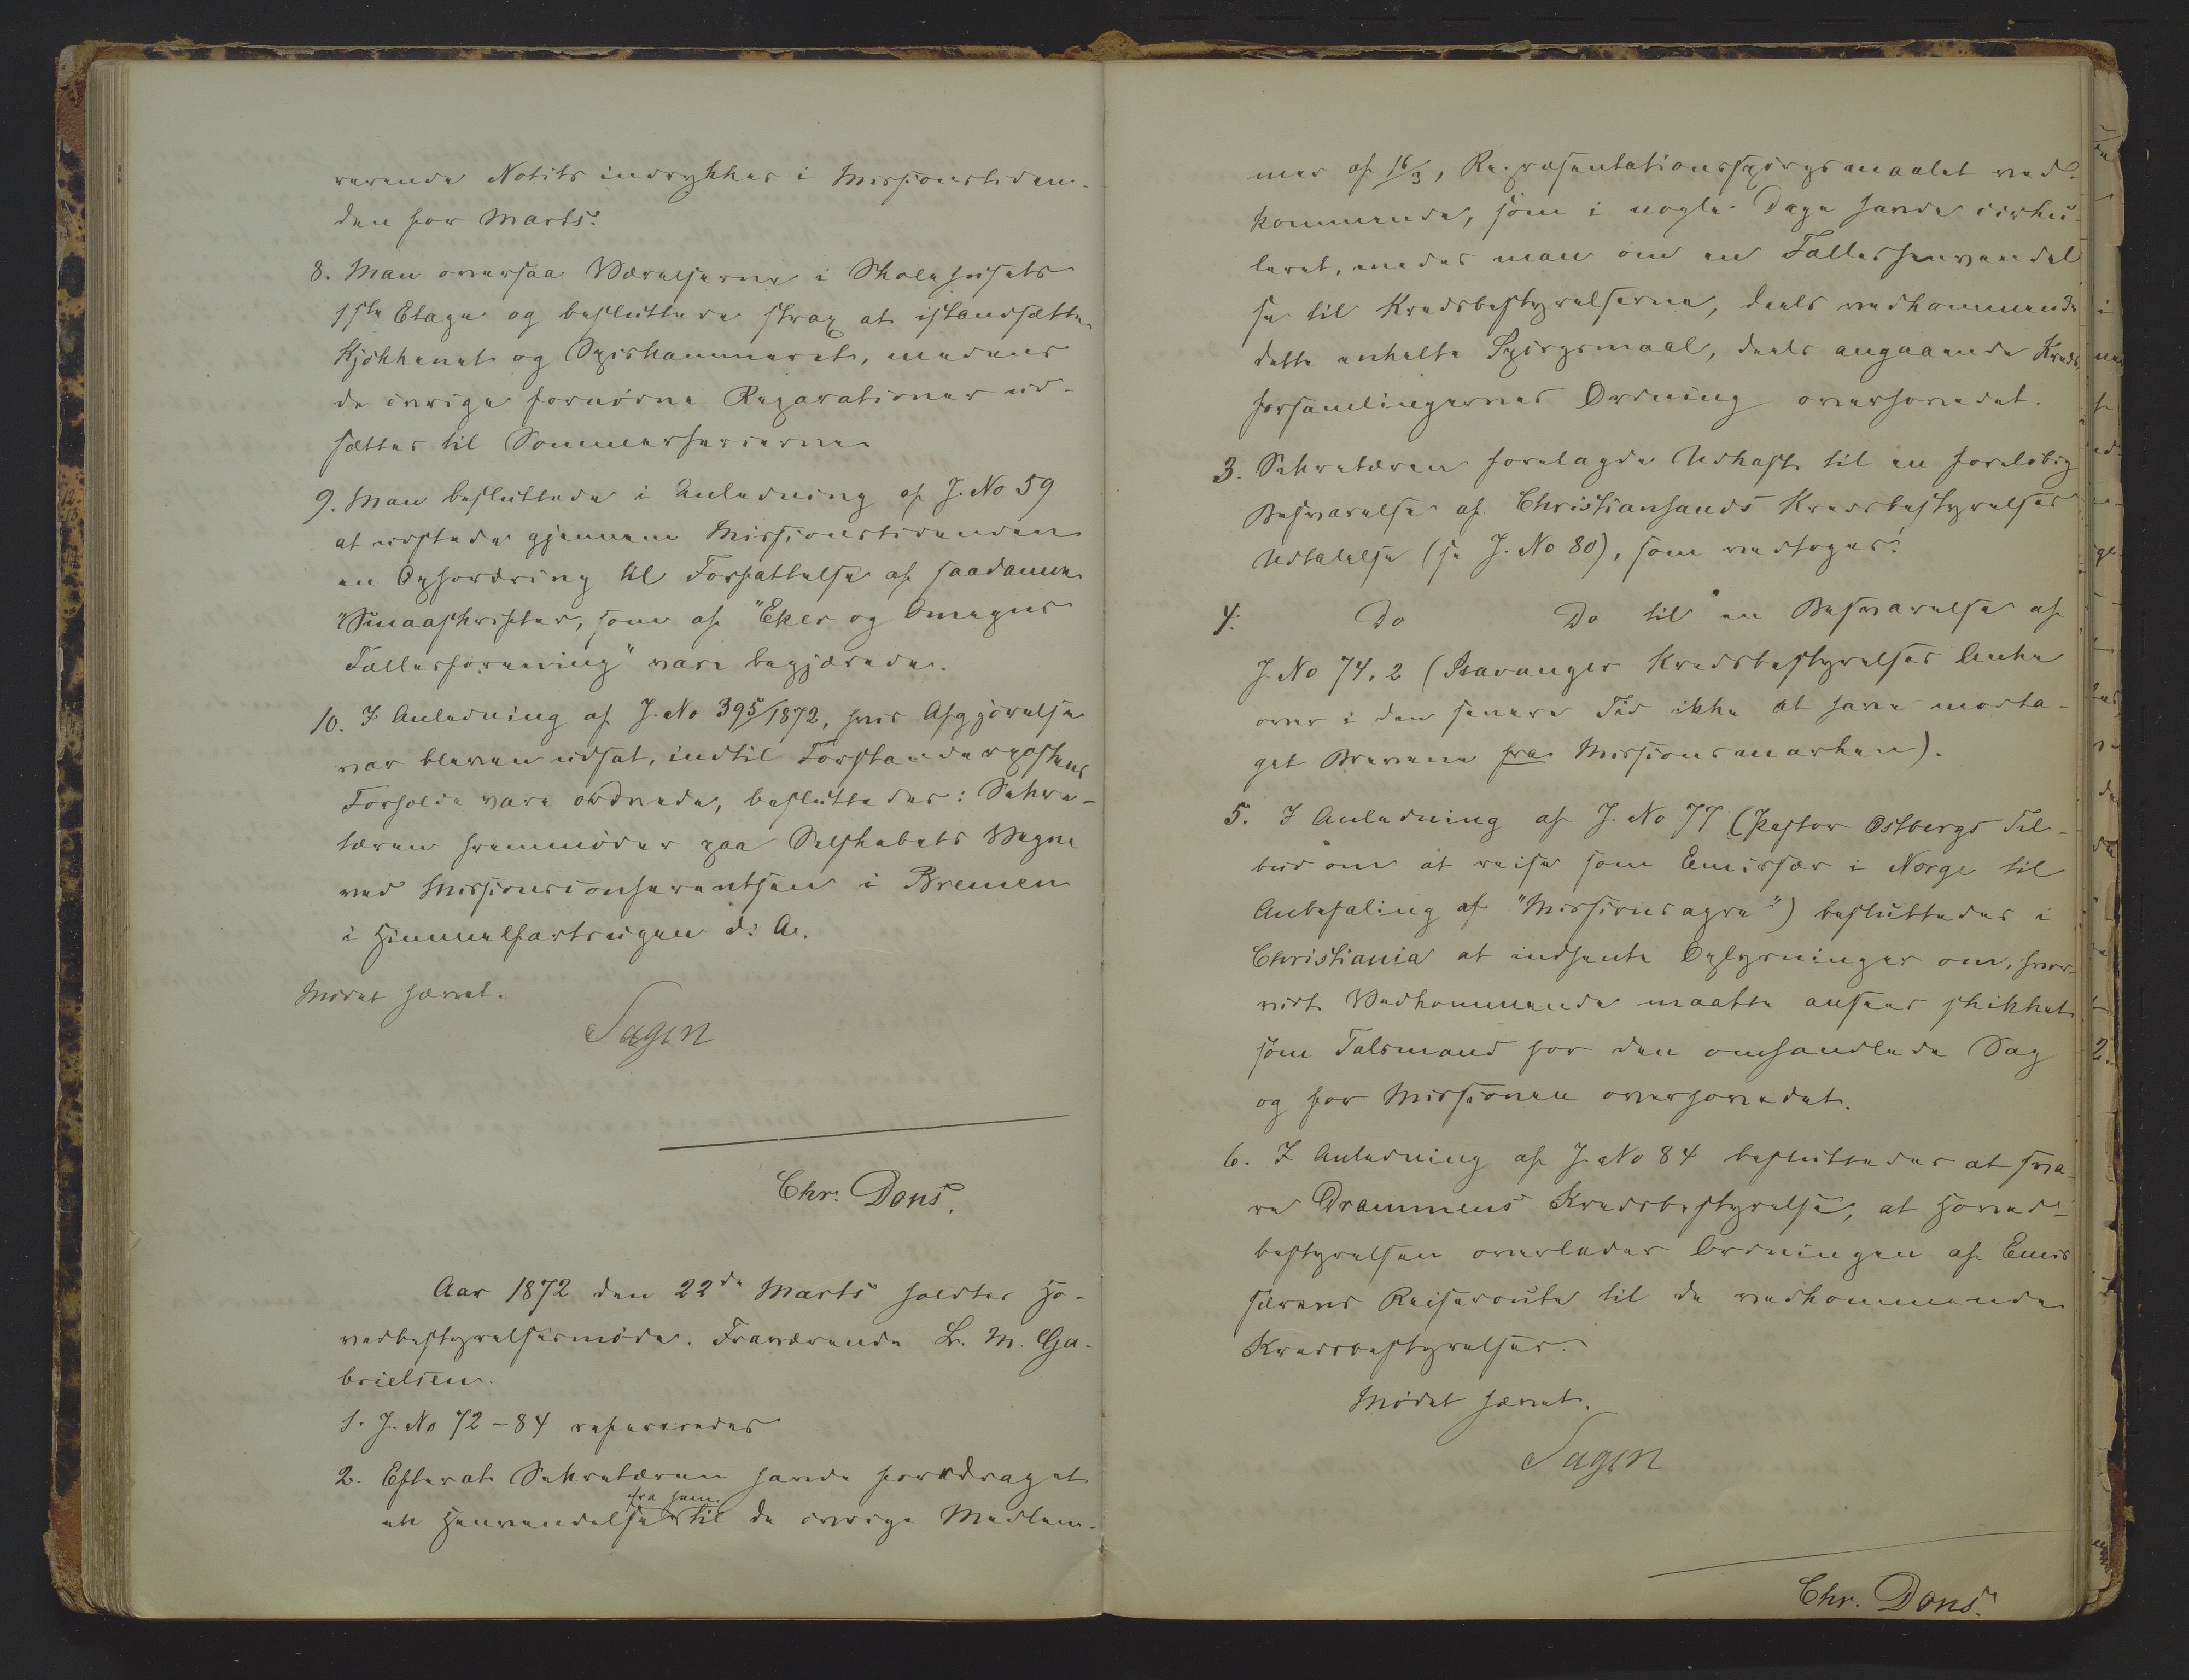 rerende Notits indrykkes i Missionstiden-
den for Marts.
8. Man oversaa Værelserne i Skolehusets
1ste Etage og besluttede strax at istandsætte
Kjøkkenet og Spiskammeret, medens
de øvrige fornødne Reparationer ud-
sættes til Sommerferierne.
9. Man besluttede i Anledning af J. No 59
at udstede gjennem Missionstidenden
en Opfordring til Forfattelse af saadanne
"Smaaskrifter, som af "Eker og Omegns
Fællesforening" vare begjærede.
10. I Anledning af J. No 395/1872, hvis Afgjørelse
var bleven udsat, indtil Forstanderpostens
Forholde vare ordnede, besluttedes: Sekre-
tæren fremmøder paa Selskabets Vegne
ved Missionsconferentsen i Bremen
i Himmelfartsugen d: A.
Mødet hævet.
Sagen
Chr. Dons.
Aar 1872 den 22de Marts holdtes Ho-
vedbestyrelsesmøde. Fraværende L. M. Ga-
brielsen.
1. J. No 72-84 refereredes
2. Efterat Sekretæren havde foredraget
en Henvendelse fra ham til de øvrige Medlem-
mer af 16/3, Repræsentationsspørgsmaalet ved-
kommende, som i nogle Dage havde cirku-
leret, enedes man om en Fælleshenvendel
se til Kredsbestyrelserne, deels vedkommende
dette enkelte Spørgsmaal, deels angaaende Kreds
forsamlingernes Ordning overhovedet.
3. Sekretæren forelagde Udkast til en foreløbig
Besvarelse af Christiansands Kredsbestyrelses
Udtalelse (se J. No 80), som vedtoges.
4. Do Do til en Besvarelse af
J. No 74, 2 (Stavanger Kredsbestyrelses Anke
over i den senere Tid ikke at have modta-
get Brevene fra Missionsmarken).
5. I Anledning af J. No 77 (Pastor Østbergs Til-
bud om at reise som Emissær i Norge til
Anbefaling af "Missionsagre") besluttedes i
Christiania at indhente Oplysninger om, hvor-
vidt Vedkommende maatte ansees skikket
som Talsmand for den omhandlede Sag
og for Missionen overhovedet.
6. I Anledning af J. No 84 besluttedes at sva-
re Drammens Kredsbestyrelse, at Hoved-
bestyrelsen overlader Ordningen af Emis
særens Reiseroute til de vedkommende
Kredsbestyrelser.
Mødet hævet.
Sagen
Chr. Dons.